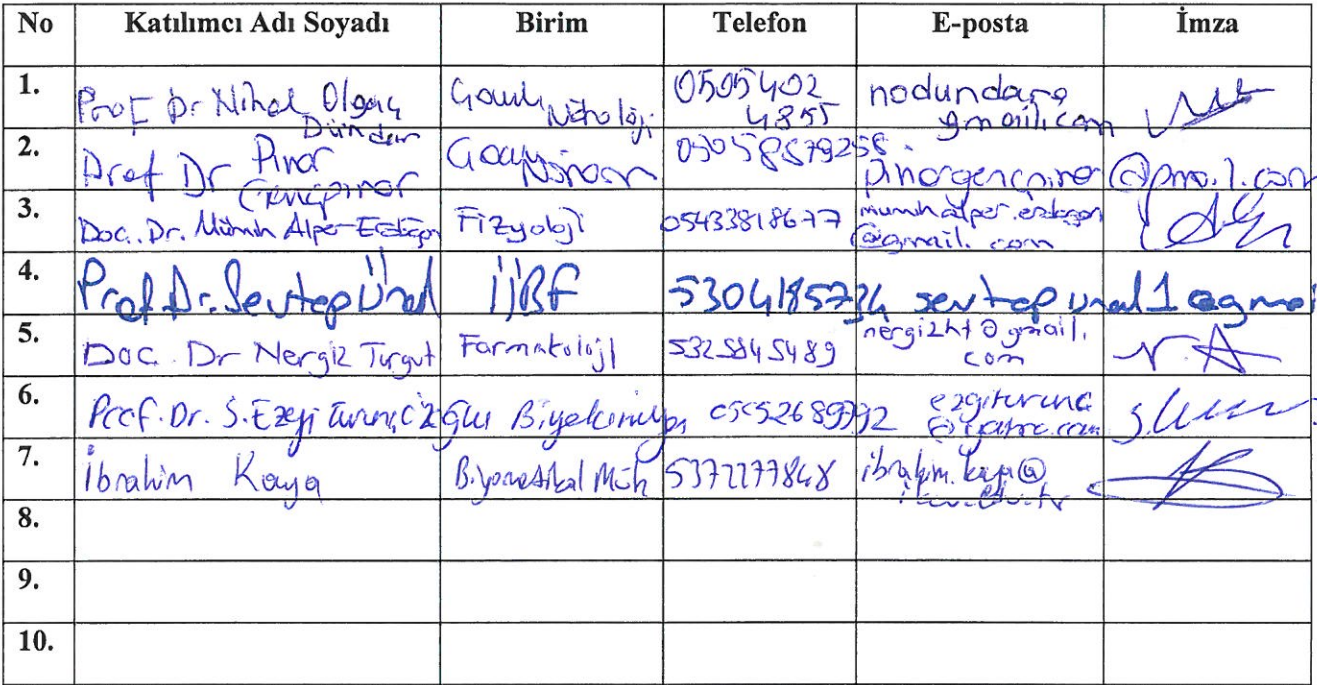 No Katılımcı Adı Soyadı Birim Telefon E-posta İmza
1. Prof Dr Nihal Olgaç Dündar 0505402 4855 nodundar@ gmail.com
2. Prof Dr Pınar Gençpınar 05058579258 pinargencpinar@gmail.com
3. Doc. Dr. Mümin Alper Erdoğan Fizyoloji 05433818677 muminalper.erdogan @gmail.com
4. Prof.Dr. Sevtap Ünal İİBF 5304185734 sevtapunal1@gmai
5. Doc. Dr Nergiz Turgut Farmakoloji 5325845489 nergizht@gmail. com N.A
6. Prof. Dr. S. Ezgi Biyokimya 05552689792 ezgiturunc @yahoo.com
7. İbrahim Kaya Biyomedikal Müh 5372177848 ibrahim.kaya@
8.
9.
10.